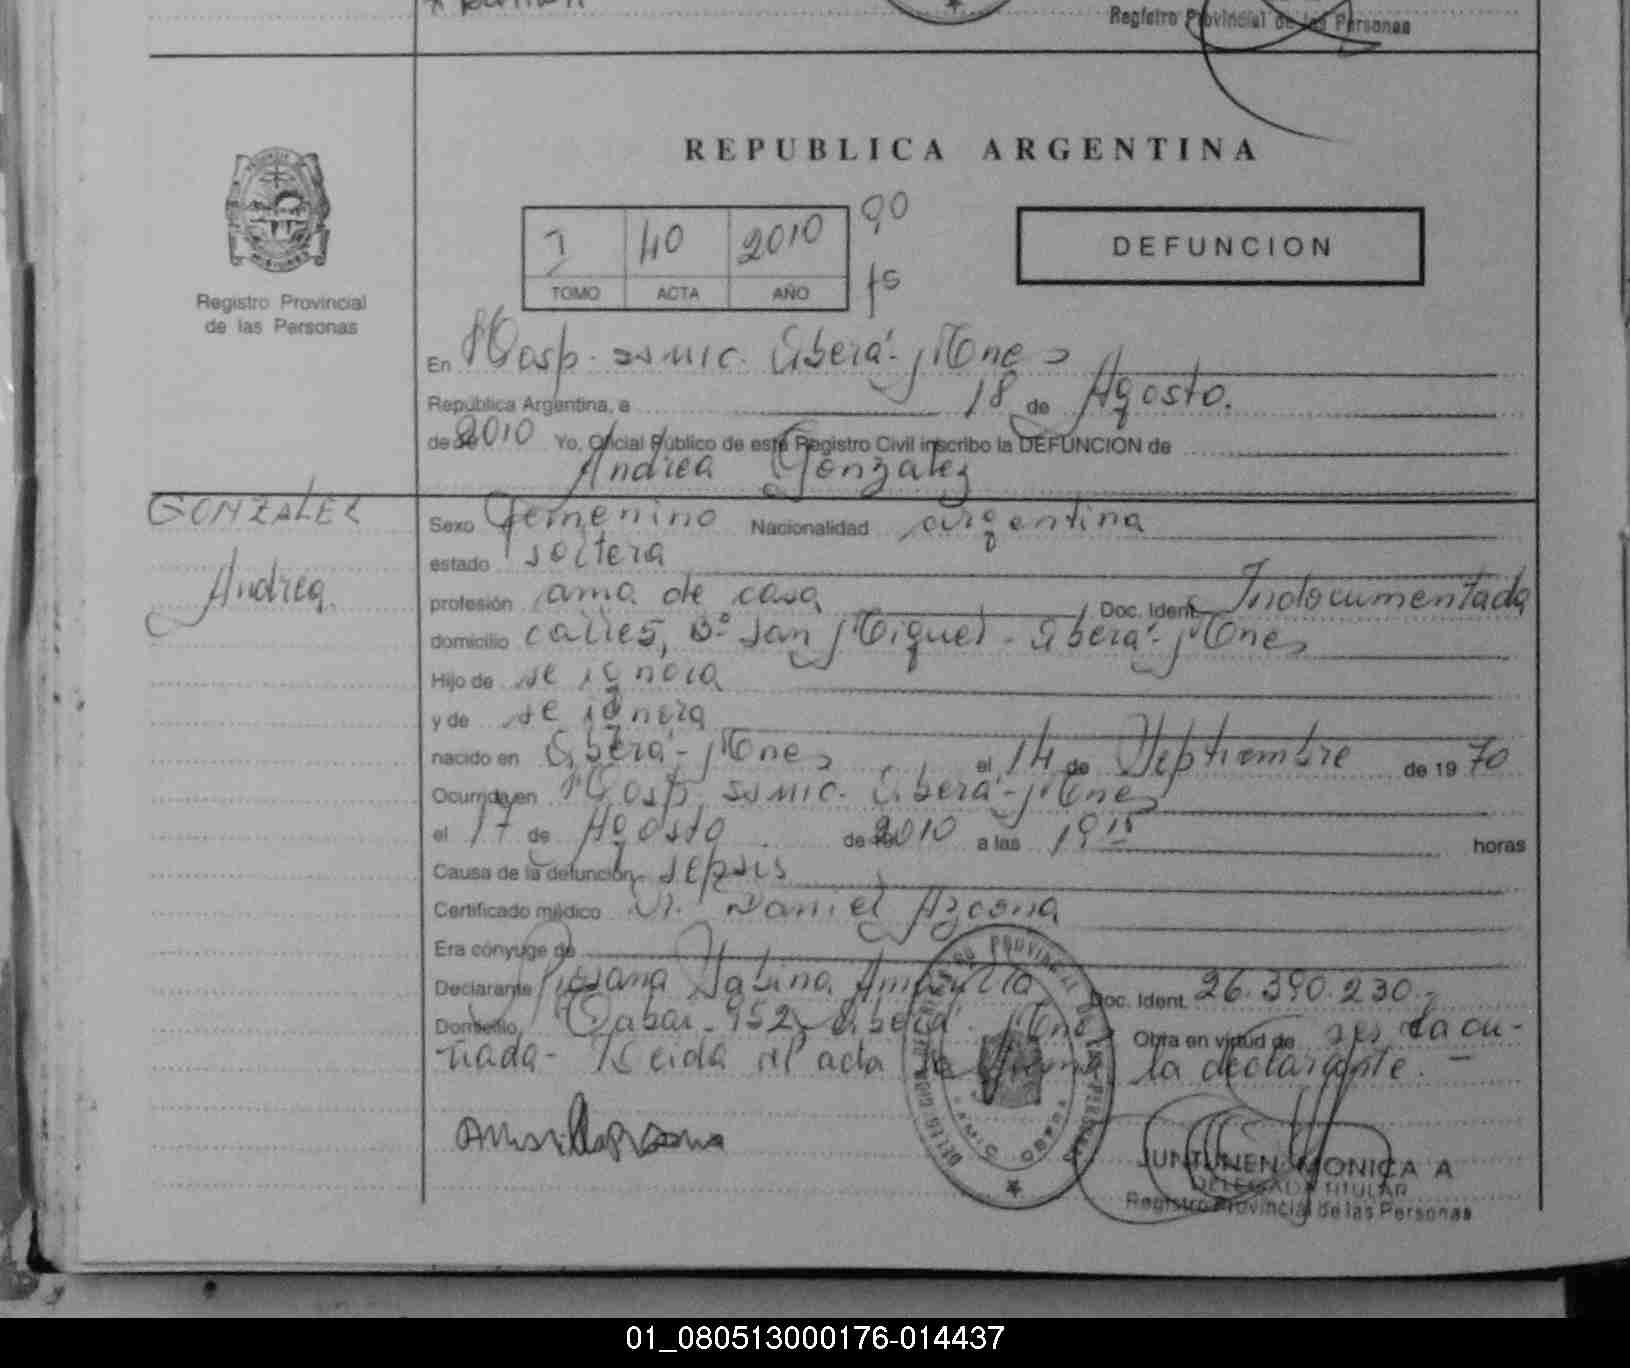 Registro Provincial de las Personas
REPUBLICA ARGENTINA
I 40 2010 90
TOMO ACTA AÑO fs
DEFUNCION
Registro Provincial
de las Personas
En Hosp. SAMIC. Oberá - Mnes
República Argentina, a 18 de Agosto.
de 2010 Yo, Oficial Público de este Registro Civil inscribo la DEFUNCION de
Andrea Gonzalez
GONZALEZ
Andrea.
Sexo Femenino Nacionalidad argentina
estado soltera
profesión ama de casa Doc. Ident. Indocumentada
domicilio calle 5, Bº San Miguel - Oberá - Mnes
Hijo de se ignora
y de se ignora
nacido en Oberá - Mnes el 14 de Septiembre de 1970
Ocurrida en Hosp. SAMIC. Oberá - Mnes
el 17 de Agosto de 2010 a las 19 15 horas
Causa de la defunción sepsis
Certificado médico Dr. Daniel
Era cónyuge de
Declarante Rosana Sabina Doc. Ident. 26.390.230.-
Domicilio 952 Oberá - Mnes Obra en virtud de ser la cu-
ñada - Leida el acta la firma la declarante. -
JUNTUNEN MONICA A
DELEGADA TITULAR
Registro Provincial de las Personas
01_080513000176-014437